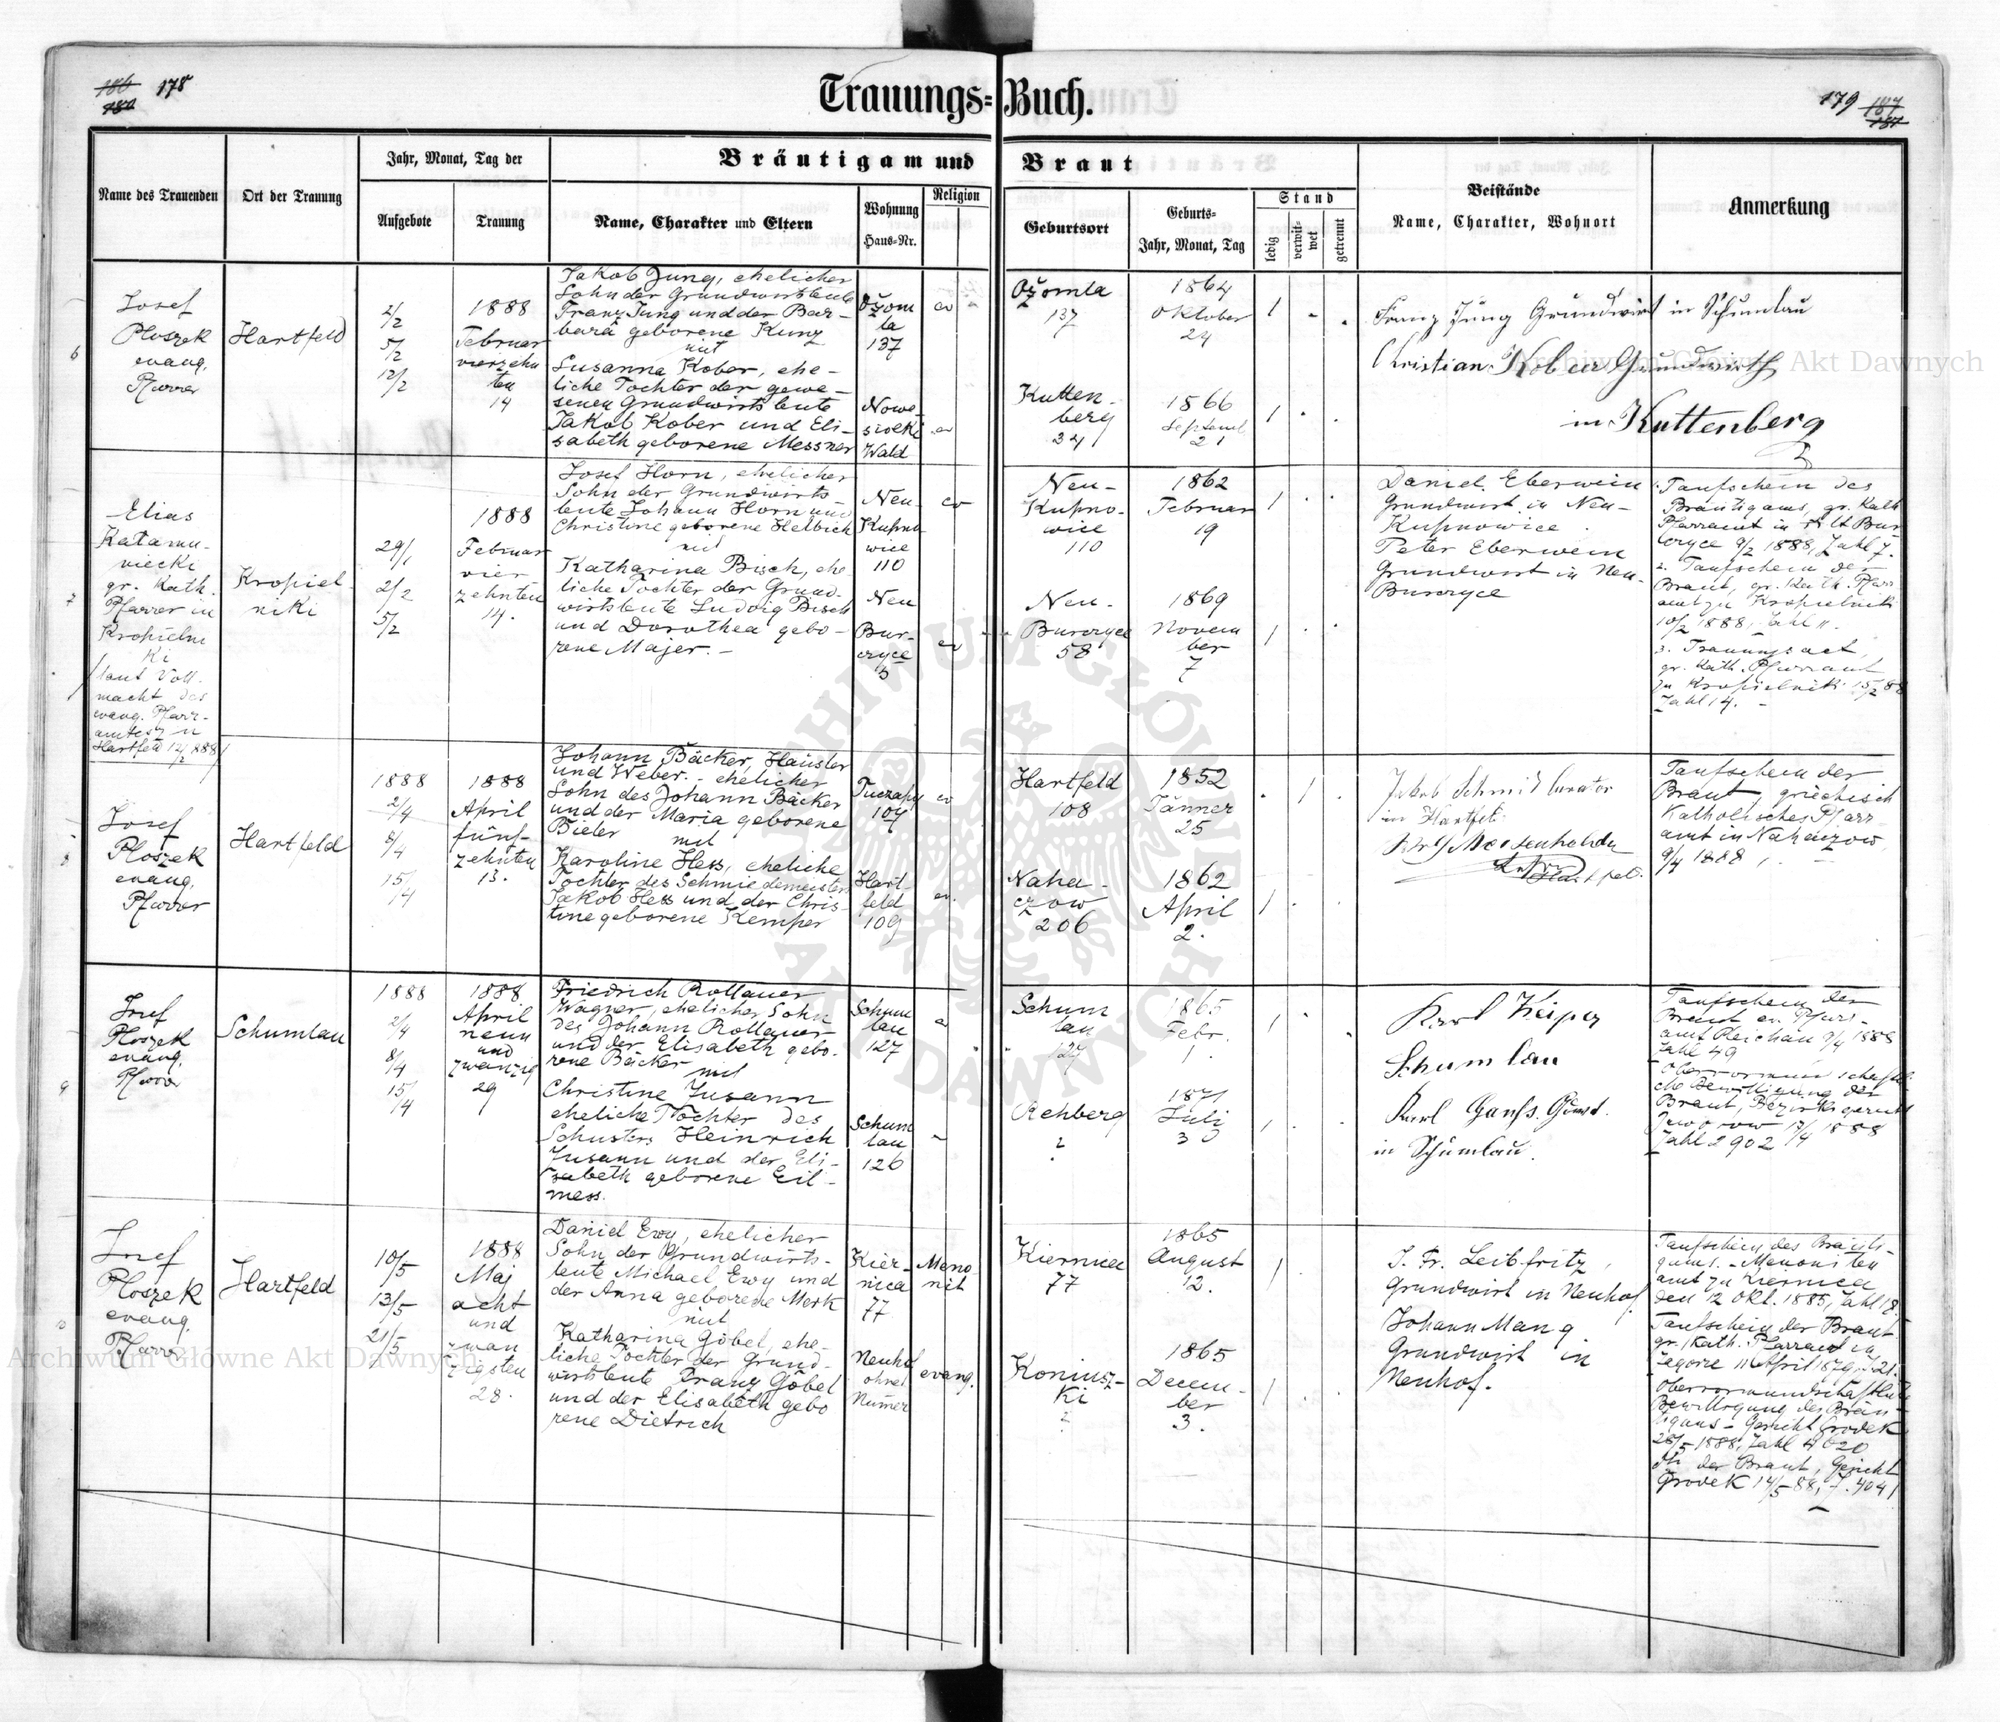 186 178
180
Trauungs=Buch.
179 187
187
Name des Trauenden
Ort der Trauung
Jahr, Monat, Tag der
Aufgebote
Trauung
Bräutigam und Braut
Name, Charakter und Eltern
Wohnung
Haus-Nr.
Religion
Geburtsort
Geburts-
Jahr, Monat, Tag
Stand
ledig
verwit-
wet
getrennt
Beistände
Name, Charakter, Wohnort
Anmerkung
6
Josef
Ploszek
evang.
Pfarrer
Hartfeld
2/2
5/2
12/2
1888
Februar
vierzehn
ten
14
Jakob Jung, ehelicher
Sohn der Grundwirtsleute
Franz Jung und der Bar-
bara geborene Kunz
mit
Susanna Kober, ehe-
liche Tochter der gewe-
senen Grundwirtsleute
Jakob Kober und Eli-
sabeth geborene Messner
Ożom
la
137
ev
Nowo-
siolki
Wald
ev
Ożomla
137
1864
Oktober
24
1
Kutten-
berg
34
1866
Septemb
21
1
Franz Jung Grundwirt in Schumlau
Christian Kober Grundwirth
in Kuttenberg
7
Elias
Katamu-
viecki
gr. Kath.
Pfarrer in
Kropielni
ki
/laut Voll-
macht des
evang. Pfarr-
amtes zu
Hartfeld 12/2 1888/
Kropiel-
niki
29/1
2/2
5/2
1888
Februar
vier
zehnten
14.
Josef Horn, ehelicher
Sohn der Grundwirts-
leute Johann Horn und
Christine geborene Helbich
mit
Katharina Bisch, ehe-
liche Tochter der Grund-
wirtsleute Ludwig Bisch
und Dorothea gebo-
rene Majer. -
Neu-
Kupno
wice
110
ev
Neu
Bur-
czyce
5
ev
Neu-
Kupno-
wice
110
1862
Februar
19
1
Neu-
Burczyce
58
1869
Novem
ber
7
1
Daniel Eberwein
Grundwirt in Neu-
Kupnowice.
Peter Eberwein
Grundwirt in Neu-
Burczyce
1. Taufschein des
Bräutigams, gr. Kath
Pfarramt in Alt Bur
czyce 9/2 1888, Zahl 7.
2. Taufschein der
Braut, gr. Kath. Pfarr
amt zu Kropielniki
10/2 1888, Zahl 11.
3. Trauungsact,
gr. Kath. Pfarramt
zu Kropielniki 15/2 88
Zahl 14. -
8
Josef
Ploszek
evang.
Pfarrer
Hartfeld
1888
2/4
8/4
15/4
1888
April
fünf-
zehnten
15.
Johann Bäcker, Häusler
und Weber. - ehelicher
Sohn des Johann Bäcker
und der Maria geborene
Bieler
mit
Karoline Hess, eheliche
Tochter des Schmiedemeisters
Jakob Hess und der Chris-
tine geborene Kemper
Tuczapy
107
ev
Hart-
feld
109
ev.
Hartfeld
108
1852
Jänner
25
1
Naha-
czow
206
1862
April
2.
1
Jakob Schmid Curator
in Hartfeld
Taufschein der
Braut, griechisch
Katholisches Pfarr-
amt in Nahaczow,
9/4 1888
9
Josef
Ploszek
evang.
Pfarrer
Schumlau
1888
2/4
8/4
15/4
1888
April
neun
und
zwanzig
29
Friedrich Rollauer
Wagner, ehelicher Sohn
des Johann Rollauer
und der Elisabeth gebo-
rene Bäcker
mit
Christine Jusann
eheliche Tochter des
Schusters Heinrich
Jusann und der Eli-
sabeth geborene Eil-
mess.
Schum
lau
127
Schum
lau
126
Schum
lau
127
1865
Febr.
1.
1
Rehberg
?
1871
Juli
30
1
Karl Keiper
Schumlau
Karl Ganss. Grund.
in Schumlau.
Taufschein der
Braut ev. Pfarr-
amt Reichau 9/4 1888
Zahl 49
Obervormundschaftli-
che Bewilligung der
Braut, Bezirksgericht
Jaworow 17/4 1888
Zahl 2902
10
Josef
Ploszek
evang.
Pfarrer
Hartfeld
10/5
13/5
21/5
1888
Maj
acht
und
zwan
zigsten
28.
Daniel Ewy, ehelicher
Sohn der Grundwirts-
leute Michael Ewy und
der Anna geborene Merk
mit
Katharina Göbel, ehe-
liche Tochter der Grund-
wirtsleute Franz Göbel
und der Elisabeth gebo
rene Dietrich
Kier-
nica
77
Meno
nit
Neuhof
ohne
Numer
evang.
Kiernica
77
1865
August
12.
1
Koniusz-
ki
?
1865
Decem-
ber
3.
1
J. Fr. Leibfritz,
Grundwirt in Neuhof.
Johann Mang.
Grundwirt in
Neuhof.
Taufschein des Bräuti-
gams. - Menoniten
amt zu Kiernica
den 12 Okt. 1885, Zahl 18.
Taufschein der Braut
gr. Kath. Pfarramt in
11 April 1879, Z 21.
Obervormundschaftliche
Bewilligung des Bräu-
tigams - Gericht Grodek
28/5 1888, Zahl 4620
der Braut, Gericht
Grodek 14/5 88, Z. 4041
Archiwum Główne Akt Dawnych
Archiwum Główne Akt Dawnych
ARCHIWUM GŁÓWNE
AKT DAWNYCH